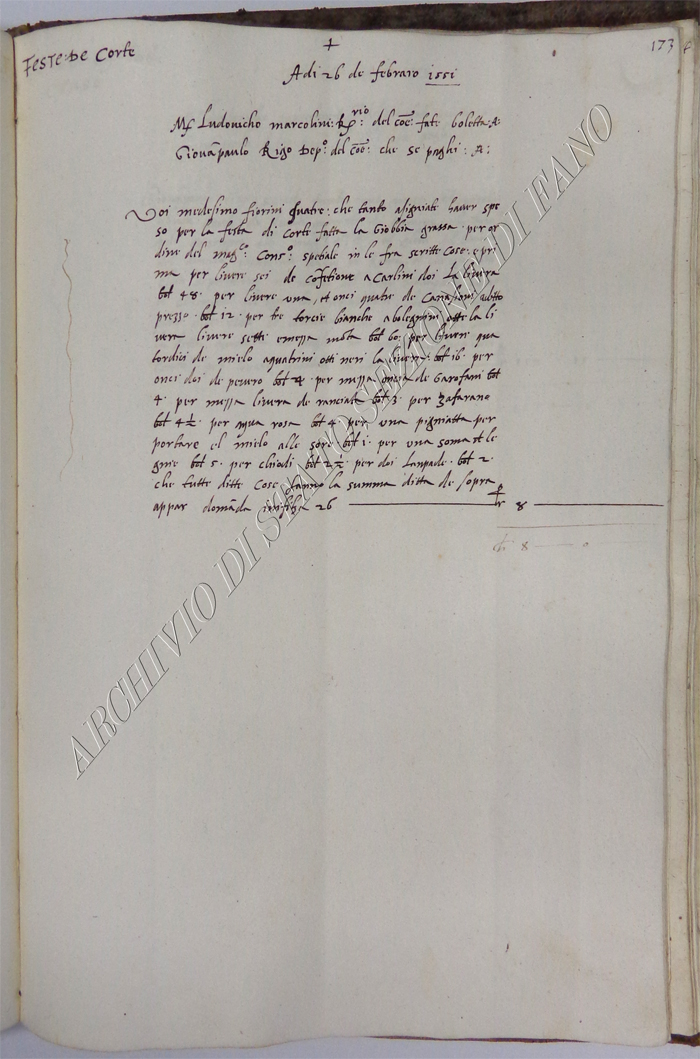 Feste de Corte
173
+
Adi 26 de febraro 1551
Mf Ludovicho marcolini R.rio del coe: fate boletta A
Giovāpaulo Rigo Depo. del coe: che se paghi: A:
Voi medesimo fiorini quatro che tanto asigniate haver spe
so per la festa di Corte fatta la Giobbia grassa per or
dine del mag.co Cons.o spetiale in le fra scritte cose e pri
ma per livere sei de cōfetione a Carlini doi la livera
bol 48. per livere una, et onci quatro de
prezzo bol 12. per tre torcie bianche a bolegnini otto la li
vera livere sette e mezza mōta bol 60. per livere qua
tordici de mielo a quatrini otti neri la livera bol 16. per
onci doi de pevero bol 4. per mezza oncia de Garofani bol
4. per mezza livera de ranciata bol 3. per zafarano
bol 4½ per aqua rosa bol 4. per una pigniatta per
portare el mielo alle sore bol 1. per una soma et le
gnie bol 5. per chiodi bol 2½ per doi lanpade bol 2.
che tutte ditte cose fanno la summa ditta de sopra
appar domāda in filza 26 8
8
ARCHIVIO DI STATO SEZIONE DI FANO